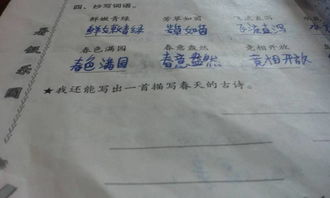 四、抄写词语。
鲜嫩青绿 芳草如茵
鲜嫩青绿 如茵
春色满园 春意盎然 竞相开放
春色满园 春意盎然 竞相开放
★我还能写出一首描写春天的古诗。
乐园